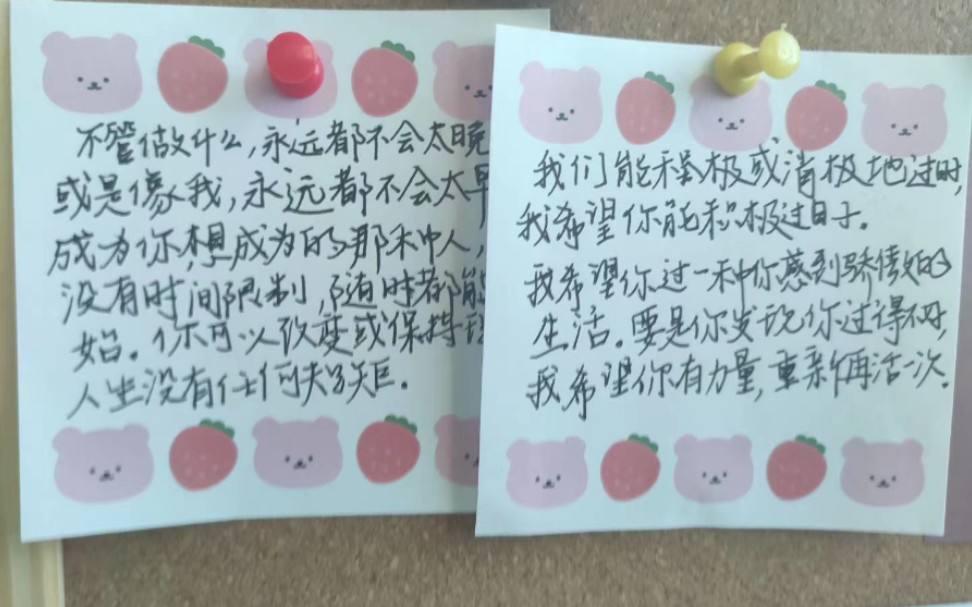 不管做什么,永远都不会太晚
或是像我,永远都不会太早
成为你想成为的那种人,
没有时间限制,随时都能
始。你可以改变或保持现
人生没有任何规矩.
我们能积极或消极地过时,
我希望你能积极过日子。
我希望你过一种你感到骄傲的
生活.要是你发现你过得不好,
我希望你有力量,重新再活一次.